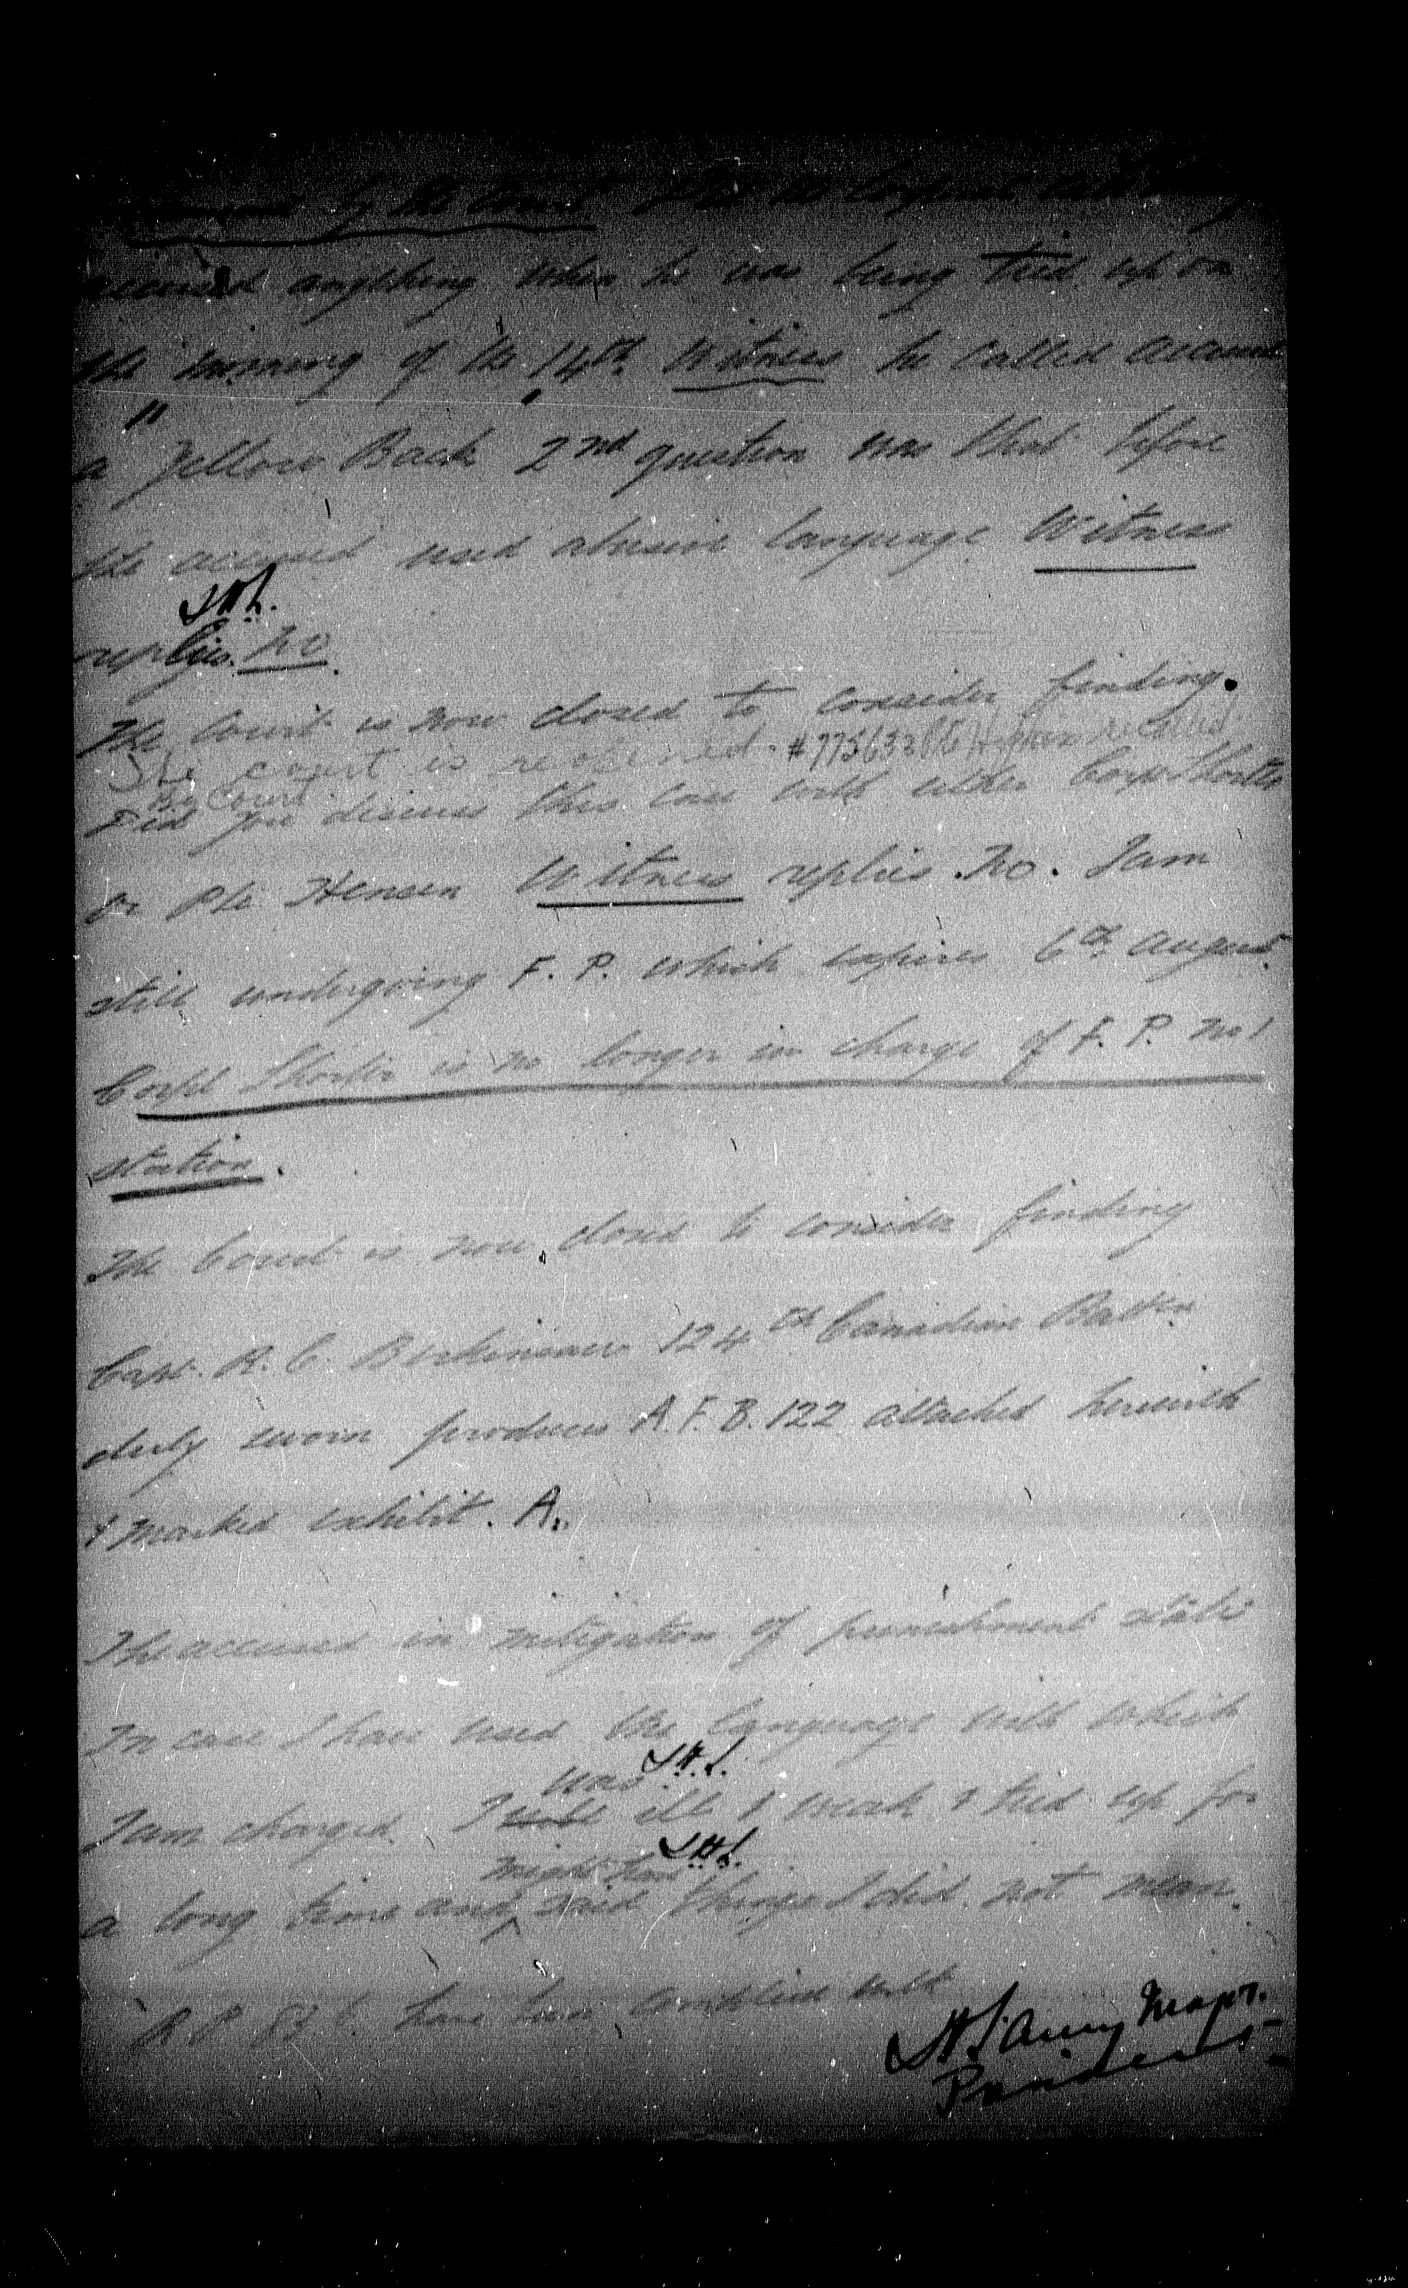 by the Court Did the Corporal call
accused anything when he was being tied up on
the morning of the 14th. Witness he called accused
a "Yellow Back 2nd question was that before
the accused used abusive language Witness
replies. No.
The Court is now closed to consider finding.
The court is reopened. recalled
By Court
Did you discuss this case with either Corpl Shorter
or Pte Hensen Witness replies. No. I am
still undergoing F. P. which expires 6th August.
Corpl Shorter is no longer in charge of F. P. No 1
station.
The Court is now closed to consider finding
Capt. R. C. 124th Canadian Battn.
duly sworn produces A.F.B. 122 attached herewith
& marked exhibit. A.
The accused in mitigation of punishment states
In case I have used the language with which
was
I am charged. I ill & weak & tied up for
might have
a long time and said things I did not mean.
R P 83 have been complied with
Major.
President